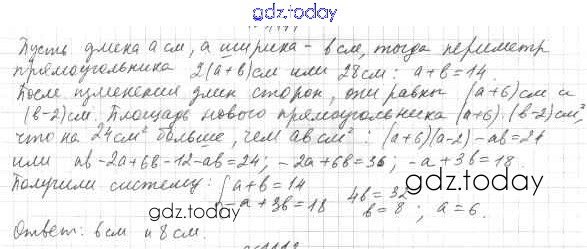 gdz.today
Пусть длина а см, а ширина - b см, тогда периметр
прямоугольника 2(а+b)см или 28см: а+b=14.
После изменения длин сторон, они равны (а+6)см и
(b-2)см. Площадь нового прямоугольника (а+6)·(b-2)см,
что на 24см² больше, чем аb см²: (а+6)(а-2)-аb=24
или аb-2а+6b-12-аb=24; -2а+6b=36; -а+3b=18.
Получили систему: { а+b=14
-а+3b=18 4b=32
b=8; а=6.
gdz.today
Ответ: 6см и 8см.
gdz.today